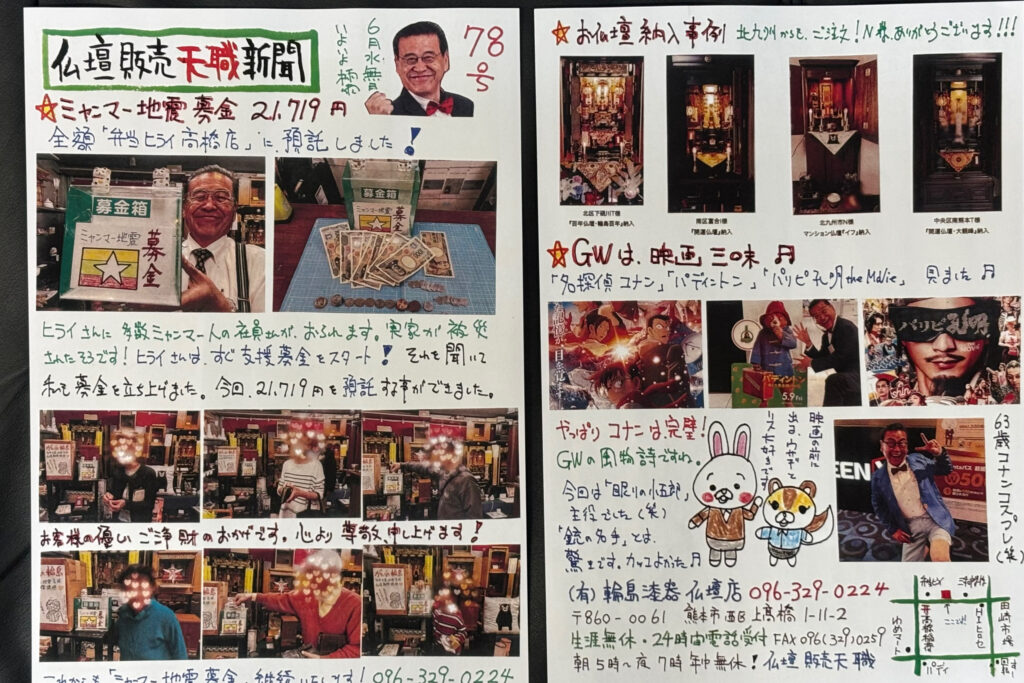 仏壇販売天職新聞
6月水無月
いよいよ
78号
☆ミャンマー地震募金 21,719円
全額「弁当ヒライ高橋店」に、預託しました!
募金箱
ミャンマー地震
募金
募金箱
募金
ヒライさんに多数ミャンマー人の社員さんが、おられます。実家が被災
されたそうです!ヒライさんは、すぐ支援募金をスタート!それを聞いて
私も募金を立ち上げました。今回、21,719円を預託する事ができました。
お客様の優しいご浄財のおかげです。心より尊敬申し上げます!
これからも「ミャンマー地震募金」継続いたします!096-329-0224
☆お仏壇納入事例 北九州からも、ご注文!N様、ありがとうございます!!!
北区下硯川T様
『百年仏壇・輪島百年』納入
南区富合I様
『開運仏壇』納入
北九州市N様
マンション仏壇『イブ』納入
中央区南熊本T様
『開運仏壇・大観峰』納入
☆GWは、映画三昧♬
「名探偵コナン」「パディントン」「パリピ孔明the Movie」見ました♬
パディントン
5.9 Fri
パリピ孔明
やっぱりコナンは、完璧!
GWの風物詩ですね。
今回は「眠りの小五郎」
主役でした(笑)
「銃の名手」とは、
驚きです。カッコよかった♬
映画の前に
出る、ウサギと
リス大好きです
63歳コナンコスプレ(笑)
(有)輪島漆器仏壇店 096-329-0224
〒860-0061 熊本市西区上高橋1-11-2
生涯無休・24時間電話受付 FAX 096(329)0259
朝5時~夜7時年中無休!仏壇販売天職
ここです
田崎市場
ゆめマート